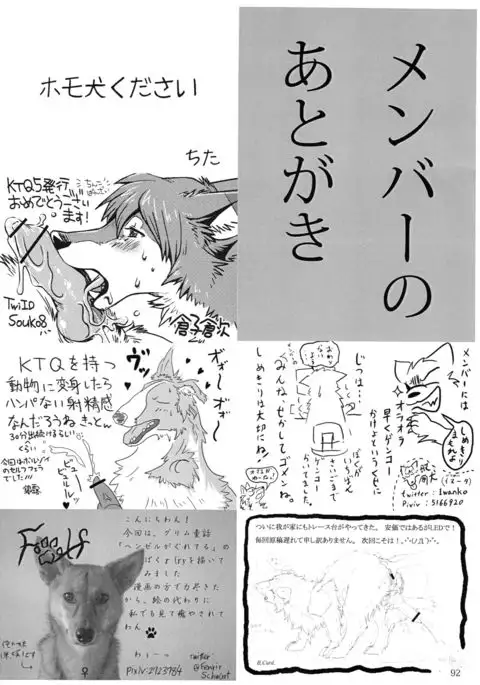 メンバーの
あとがき
ホモ犬ください
ちた
KTQ5発行
おめでとうござい
ます!
TwiID
Souko8
倉子倉次
KTQを持つ
動物に変身したら
ハンパない射精感
なんだろうねきっと。
30分出続けるらしい
くらい
今回はボルゾイ
のセルフフェラ
でした!!!
ビュー
ビュールッ
ヴッ
ガォ〜ガォ〜
メンバーには
しめきり
まもれよ
オラオラ
早くゲンコー
かけよというくせに
じつは…
ぼくが
いちばん
さいごまで
ゲンコー
みんな、せかしてゴメンね。
しめきりは大切にね!
twitter: Iwanko
Pixiv: 5166920
こんにちわん!
今回は、グリム童話
「ヘンゼルがぐれてる」の
ぱくりを描いて
みました
漫画の方で力尽きた
から、絵の代わりに
私でも見て癒やされて
わん
わぅーっ
twitter:
@Fenrir
Pixiv:2123984
ついに我が家にもトレース台がやってきた。 安価ではあるがLEDで!
毎回原稿遅れて申し訳ありません。 次回こそは!
92